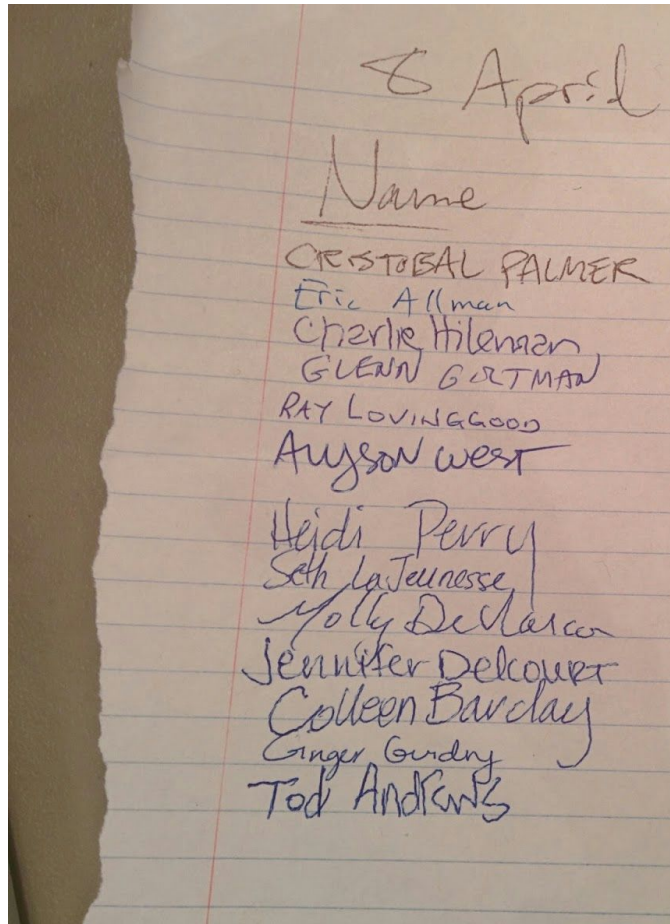 8 April
Name
CRISTOBAL PALMER
Eric Allman
Charlie Hileman
GLENN GUTMAN
RAY LOVINGGOOD
Alyson West
Heidi Perry
Seth LaJeunesse
Molly DeMarco
Jennifer Delcourt
Colleen Barclay
Ginger Guidry
Tod Andrews